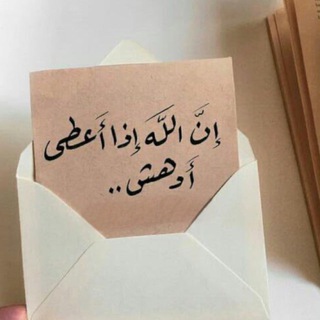 إنَّ اللَّهَ إذا أَعطى
أَدهش..